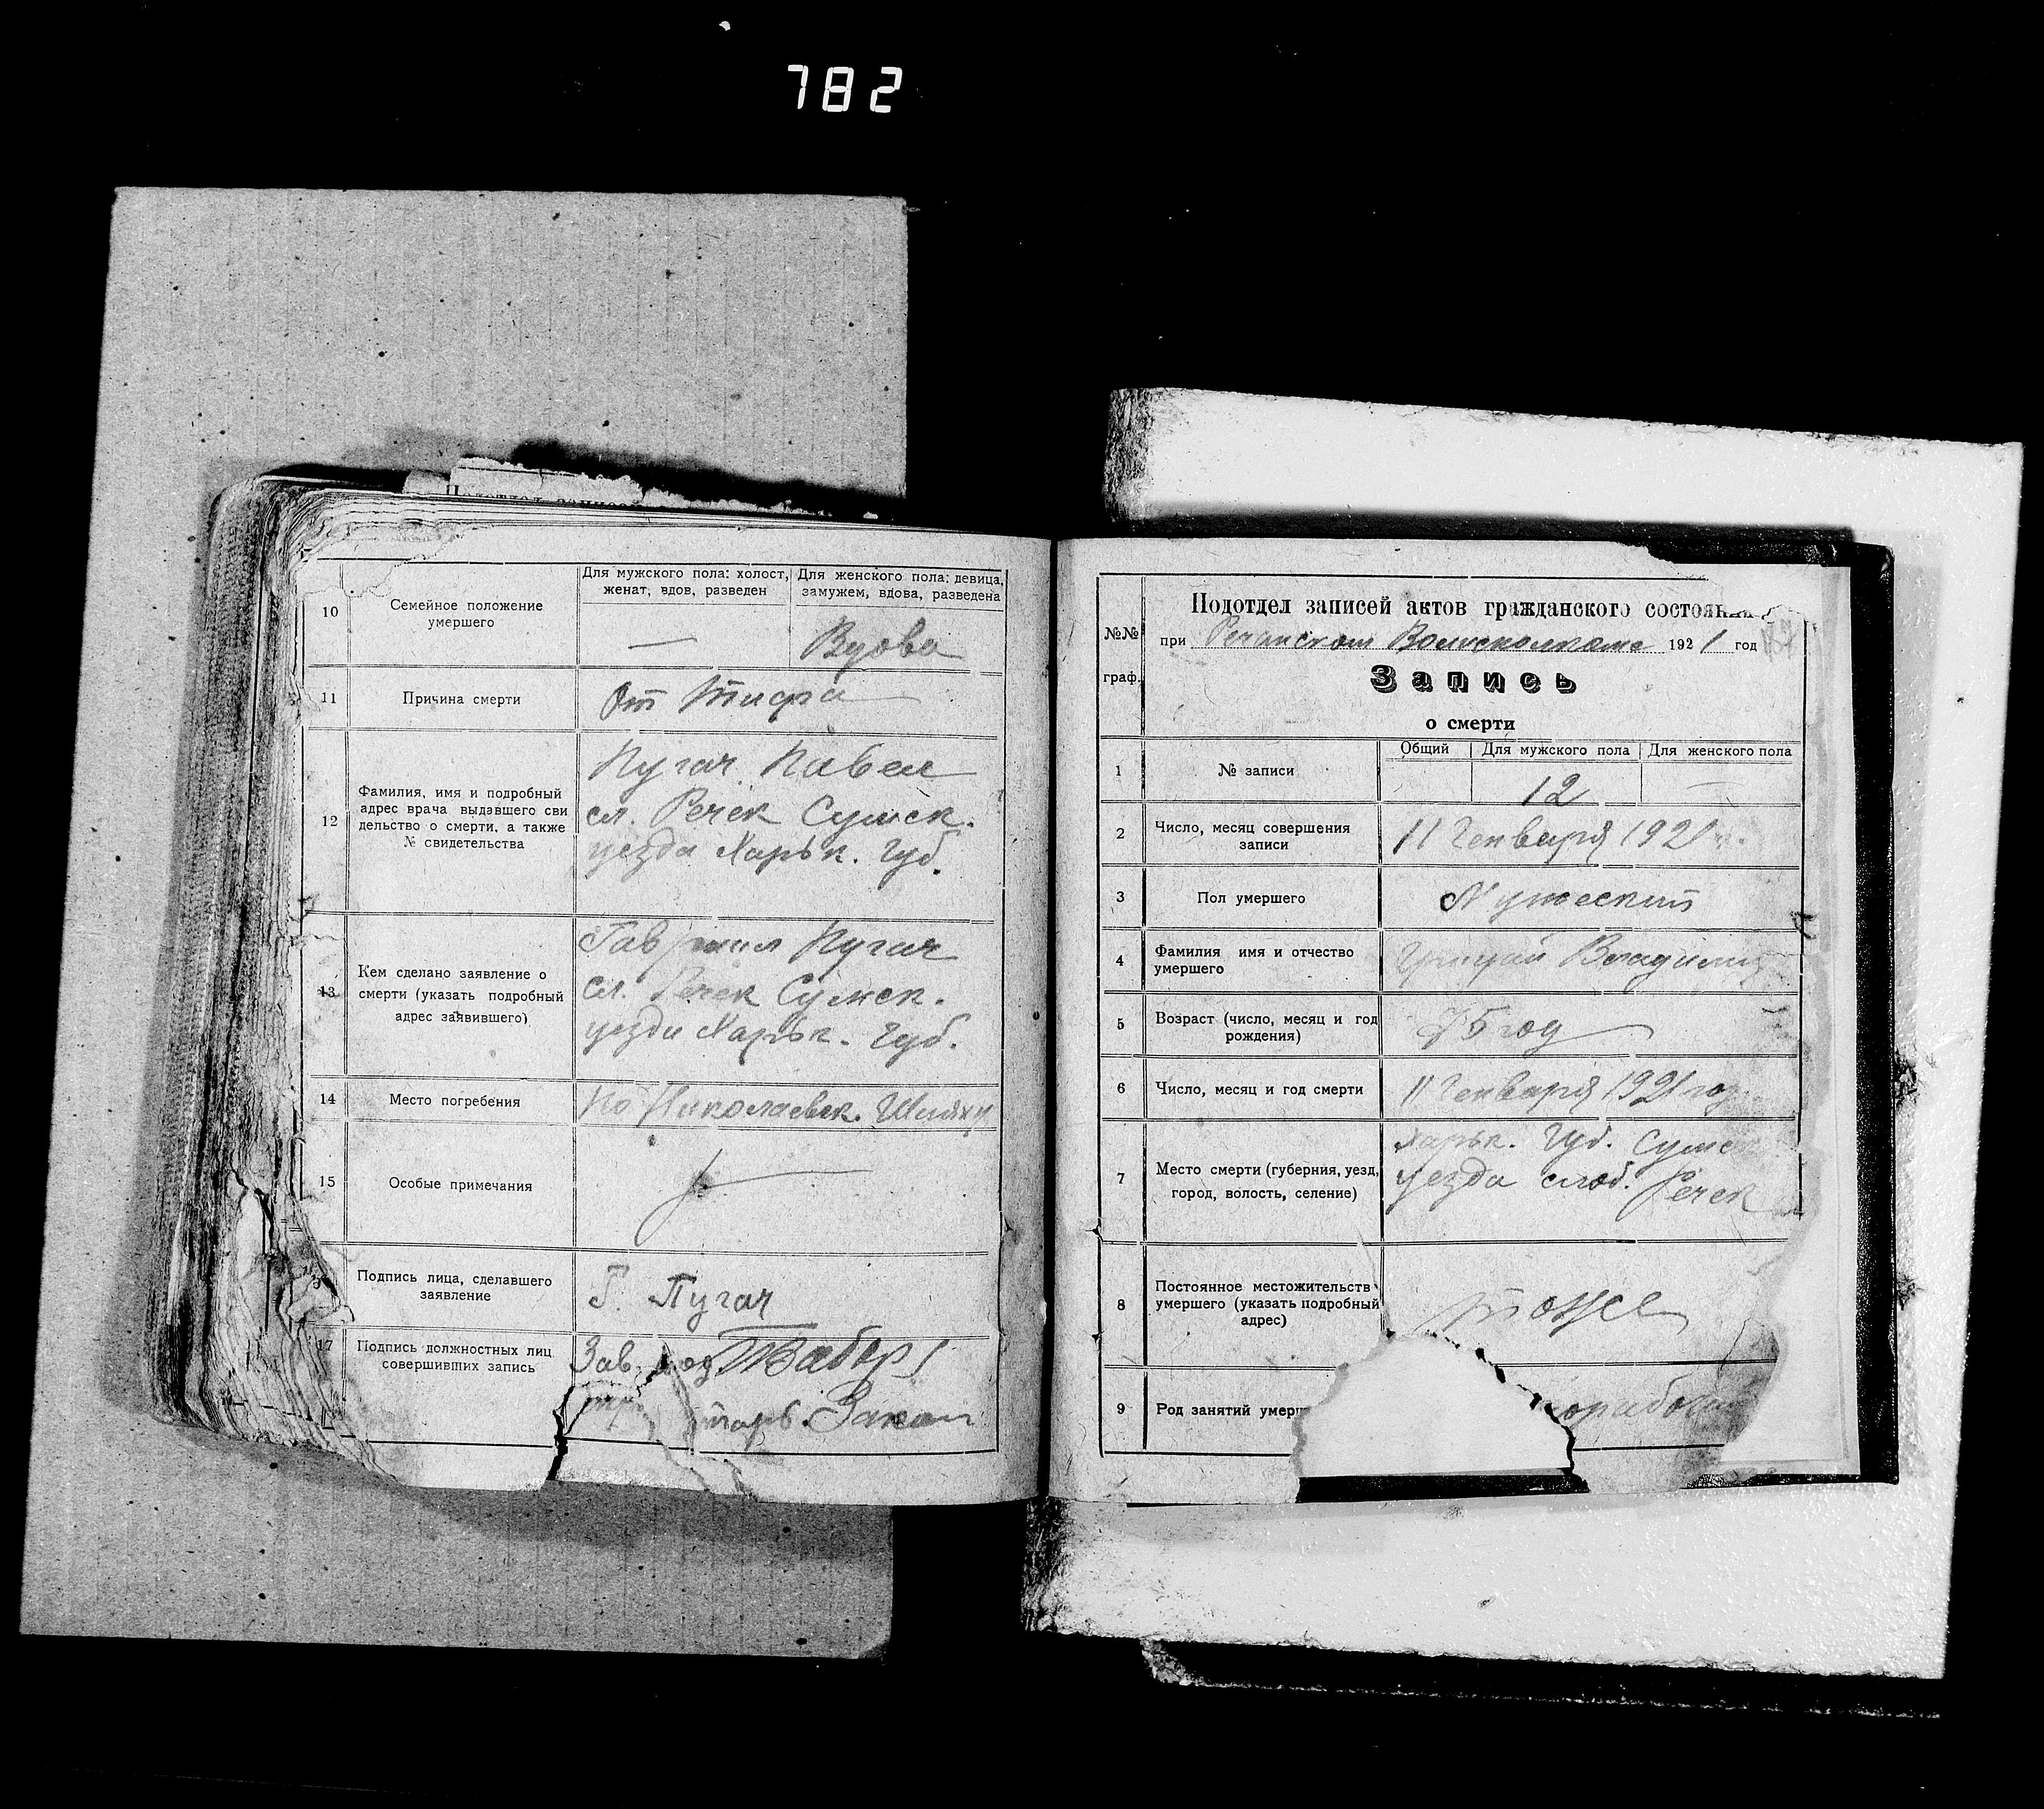 782
Подотдел записей
10
Семейное положение
умершего
Для мужского пола: холост,
женат, вдов, разведен
Для женского пола: девица,
замужем, вдова, разведена
—
Вдова
11
Причина смерти
От Тифа
12
Фамилия, имя и подробный
адрес врача выдавшего сви
дельство о смерти, а также
№ свидетельства
Пугач Павел
сл. Речек Сумск.
уезда Харьк. губ.
13
Кем сделано заявление о
смерти (указать подробный
адрес заявившего)
Гавриил Пугач
сл. Речек Сумск.
уезда Харьк. губ.
14
Место погребения
По Николаевск.
15
Особые примечания
Подпись лица, сделавшего
заявление
Г. Пугач
17
Подпись должностных лиц
совершивших запись
Зав.
Подотдел записей актов гражданского состоян
№№
граф.
при Речанском Волисполкоме 1921 год
Запись
о смерти
1
№ записи
Общий
Для мужского пола
Для женского пола
12
—
2
Число, месяц совершения
записи
11 Генваря 1921 г.
3
Пол умершего
Мужеский
4
Фамилия имя и отчество
умершего
Грицай
5
Возраст (число, месяц и год
рождения)
год
6
Число, месяц и год смерти
11 Генваря 1921 год
7
Место смерти (губерния, уезд,
город, волость, селение)
Харьк. губ. Сумск
уезда слоб. Речек
8
Постоянное местожительств
умершего (указать подробный
адрес)
тоже
9
Род занятий умерш